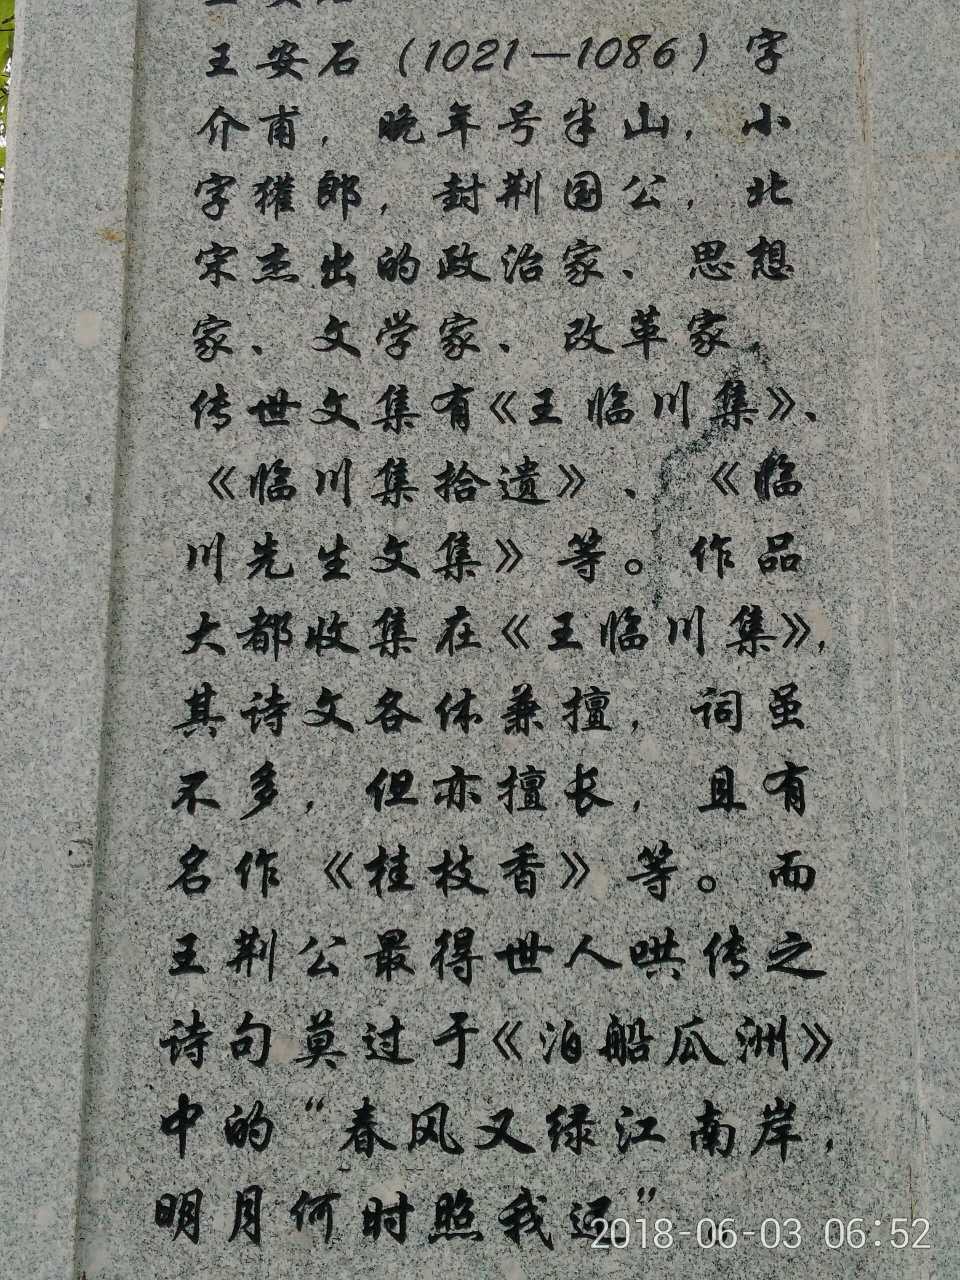 王安石（1021—1086）字
介甫，晚年号半山，小
字獾郎，封荆国公，北
宋杰出的政治家、思想
家、文学家、改革家，
传世文集有《王临川集》、
《临川集拾遗》、《临
川先生文集》等。作品
大都收集在《王临川集》，
其诗文各体兼擅，词虽
不多，但亦擅长，且有
名作《桂枝香》等。而
王荆公最得世人哄传之
诗句莫过于《泊船瓜洲》
中的“春风又绿江南岸，
明月何时照我还”。
2018-06-03 06:52